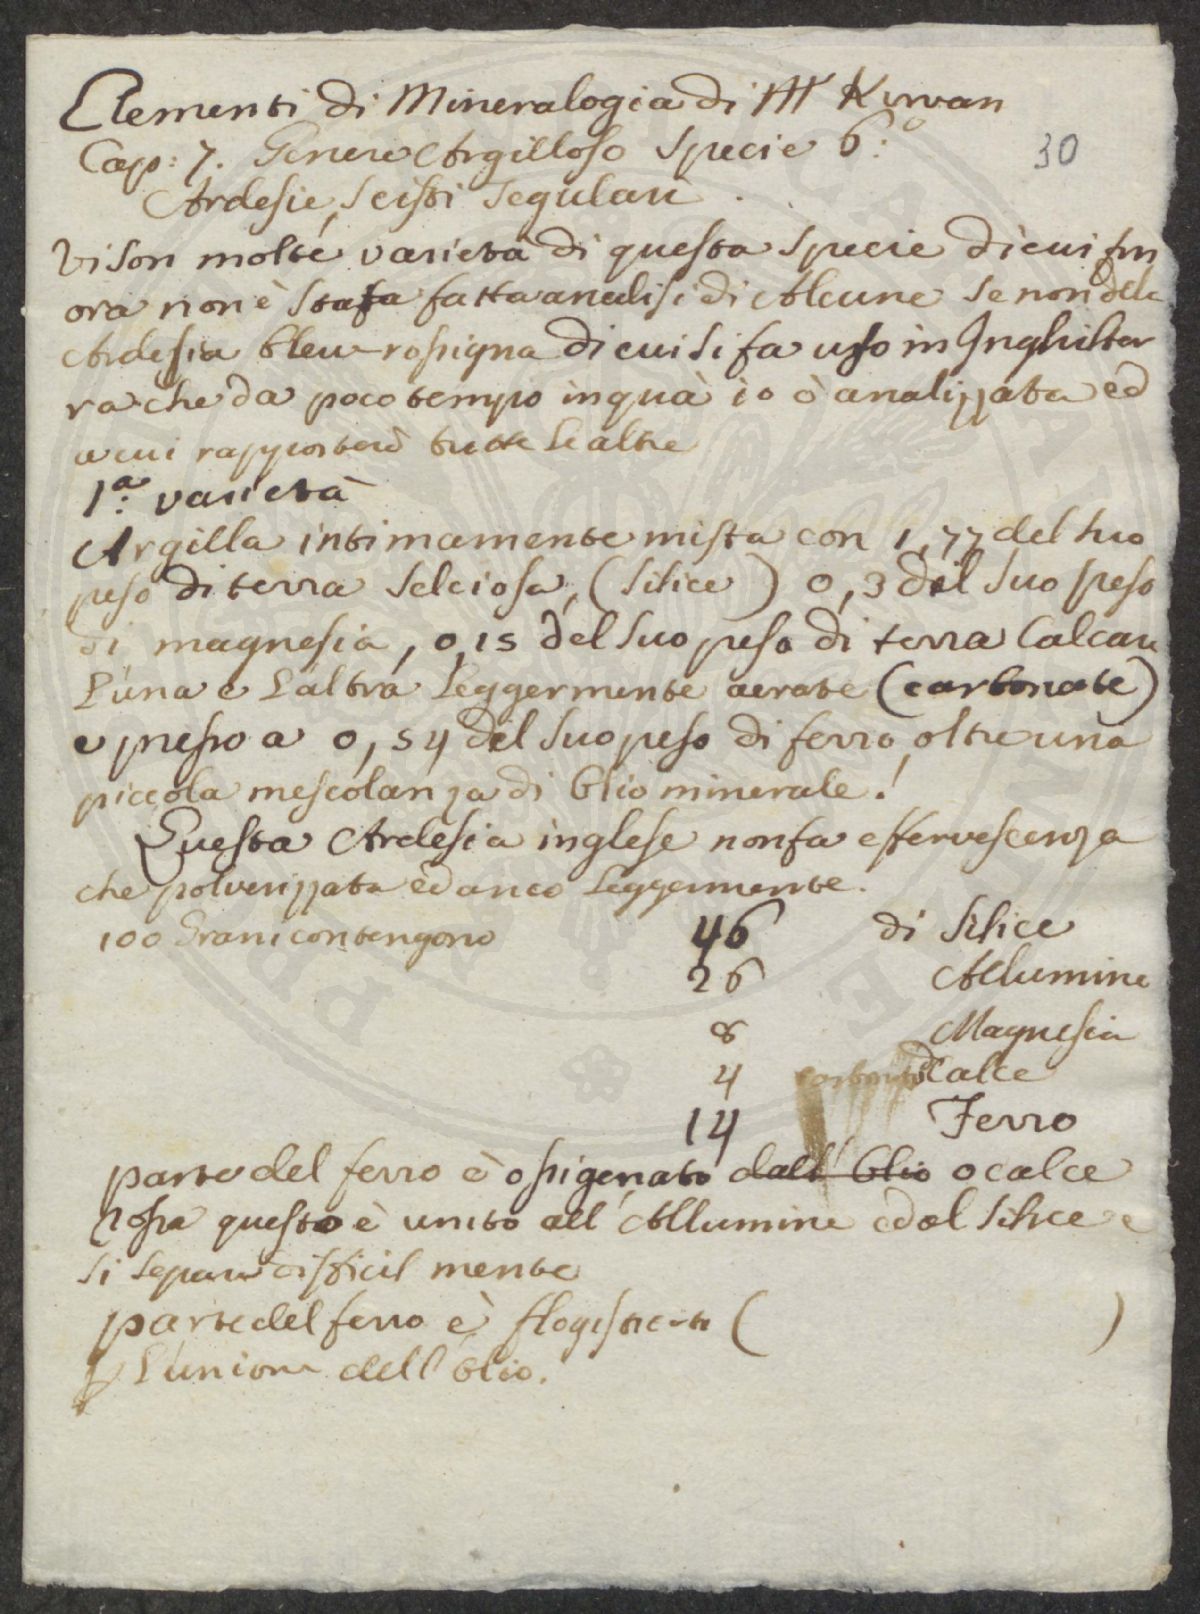 Elementi di Mineralogia di Mr Kirwan
Cap: 7. Genere Argilloso Specie 6:
30
Ardesie, Scisti Tegulari
Vi son molte varietà di questa specie di cui fin
ora non è stata fatta analisi di Alcune se non dela
Ardesia bleu-rossigna di cui si fa uso in Inghilter
ra che da poco tempo in quà io ò analizzata ed
a cui rapporterò tutte le altre
1a: varietà
Argilla intimamente mista con 1,77 del suo
peso di terra selciosa, (silice) 0,3 del suo peso
di magnesia, 0,15 del suo peso di terra Calcare
l'una e l'altra leggermente aerate (carbonate)
e presso a 0,54 del suo peso di ferro, oltre una
piccola mescolanza di Olio minerale.
Questa Ardesia inglese non fa effervescenza
che polverizzata ed anco leggermente.
100 Grani contengono 46 di Silice
26 Allumine
8 Magnesia
4 Calce
14 Ferro
parte del ferro è ossigenato dall' Olio o calce
rossa questo è unito all' Allumine ed al Silice e
si separa difficilmente
parte del ferro è flogisticato ( )
l'unione dell' Olio.